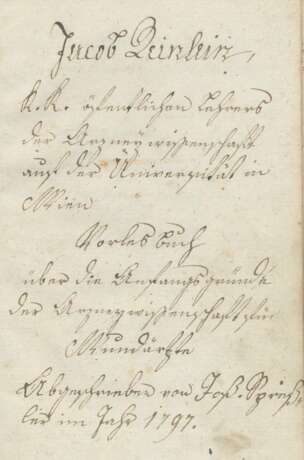 Jacob Reinlein,
K. K. öfentlichen Lehrers
der Arzneywissenschaft
auf der Universität in
Wien
Vorlesbuch
über die Anfangsgründe
der Arzneywissenschaft für
Wundärzte
Abgeschrieben von Jos. Sprech-
ler im Jahr 1797.